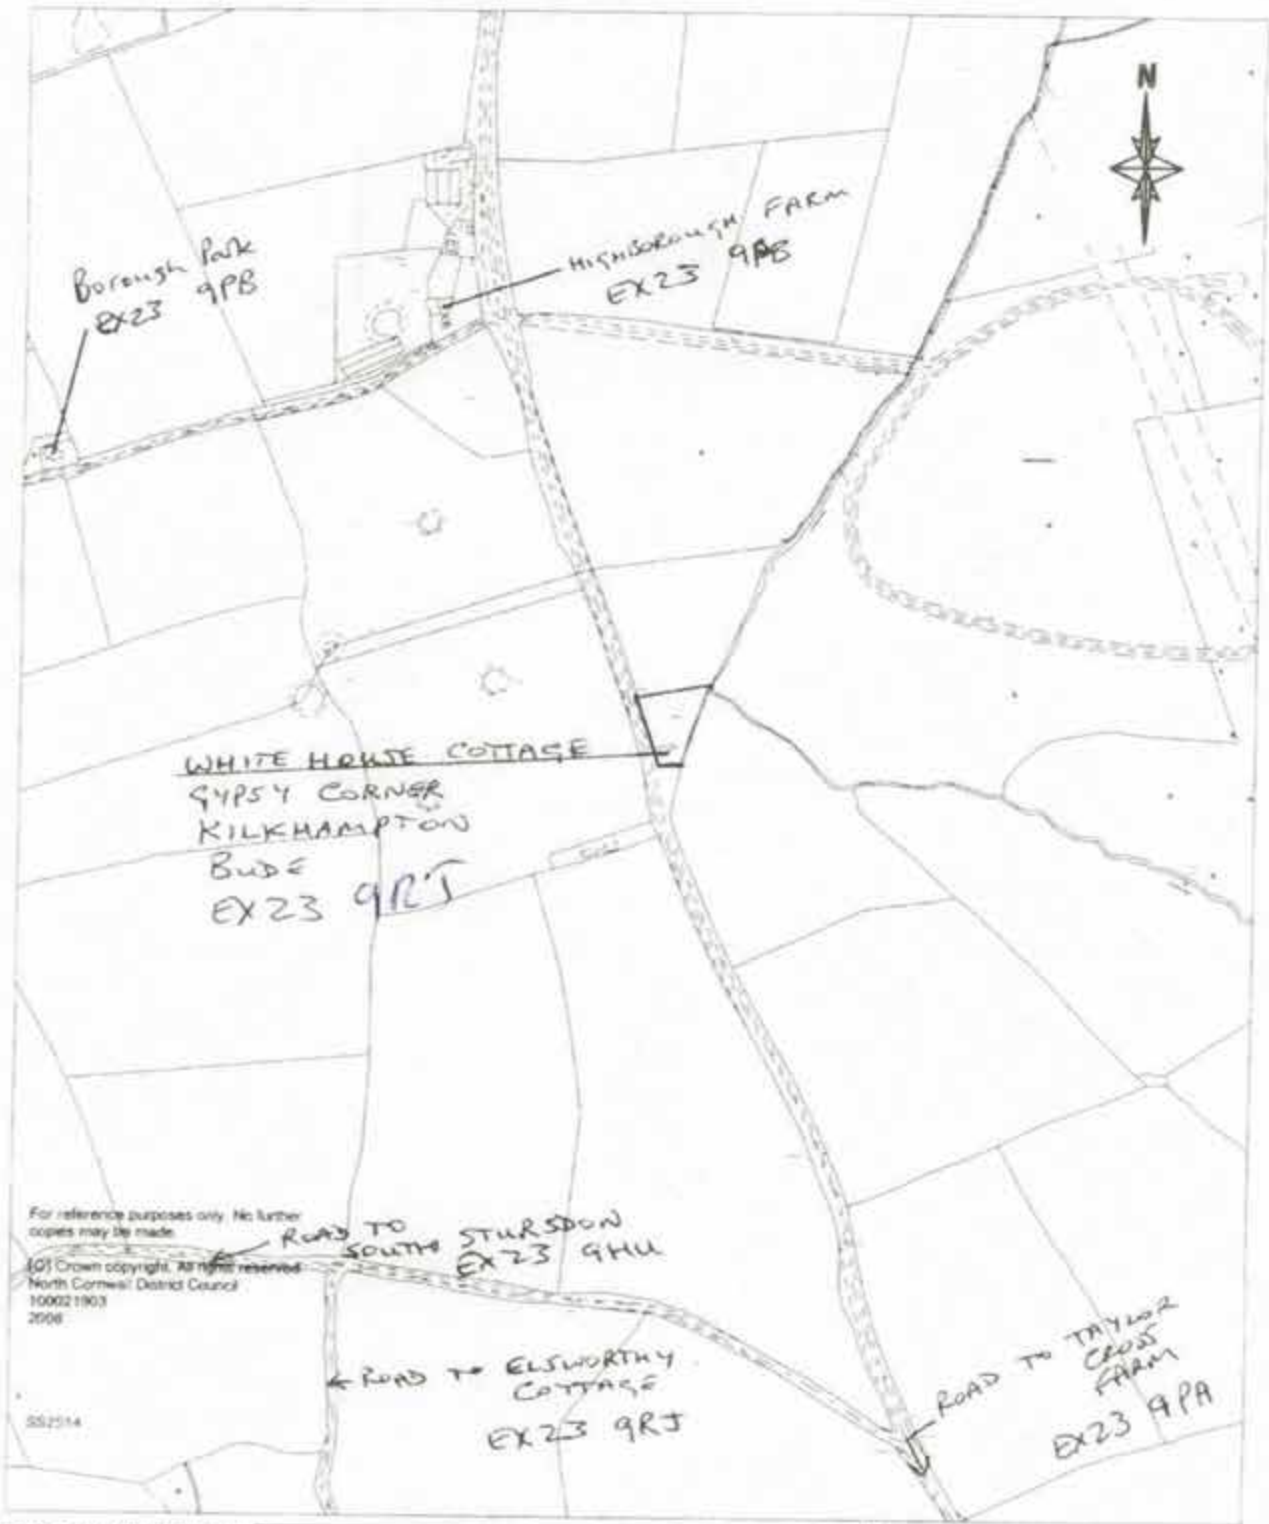 N
Borough Park
EX23 9PB
HIGHBOROUGH FARM
EX23 9PB
WHITE HOUSE COTTAGE
GYPSY CORNER
KILKHAMPTON
BUDE
EX23 9RJ
For reference purposes only. No further
copies may be made.
(C) Crown copyright. All rights reserved
North Cornwall District Council
100021903
2008
ROAD TO
SOUTH STURSDON
EX23 9HU
ROAD TO ELSWORTHY
COTTAGE
EX23 9RJ
ROAD TO TAYLOR
CROSS
FARM
EX23 9PA
SS2514